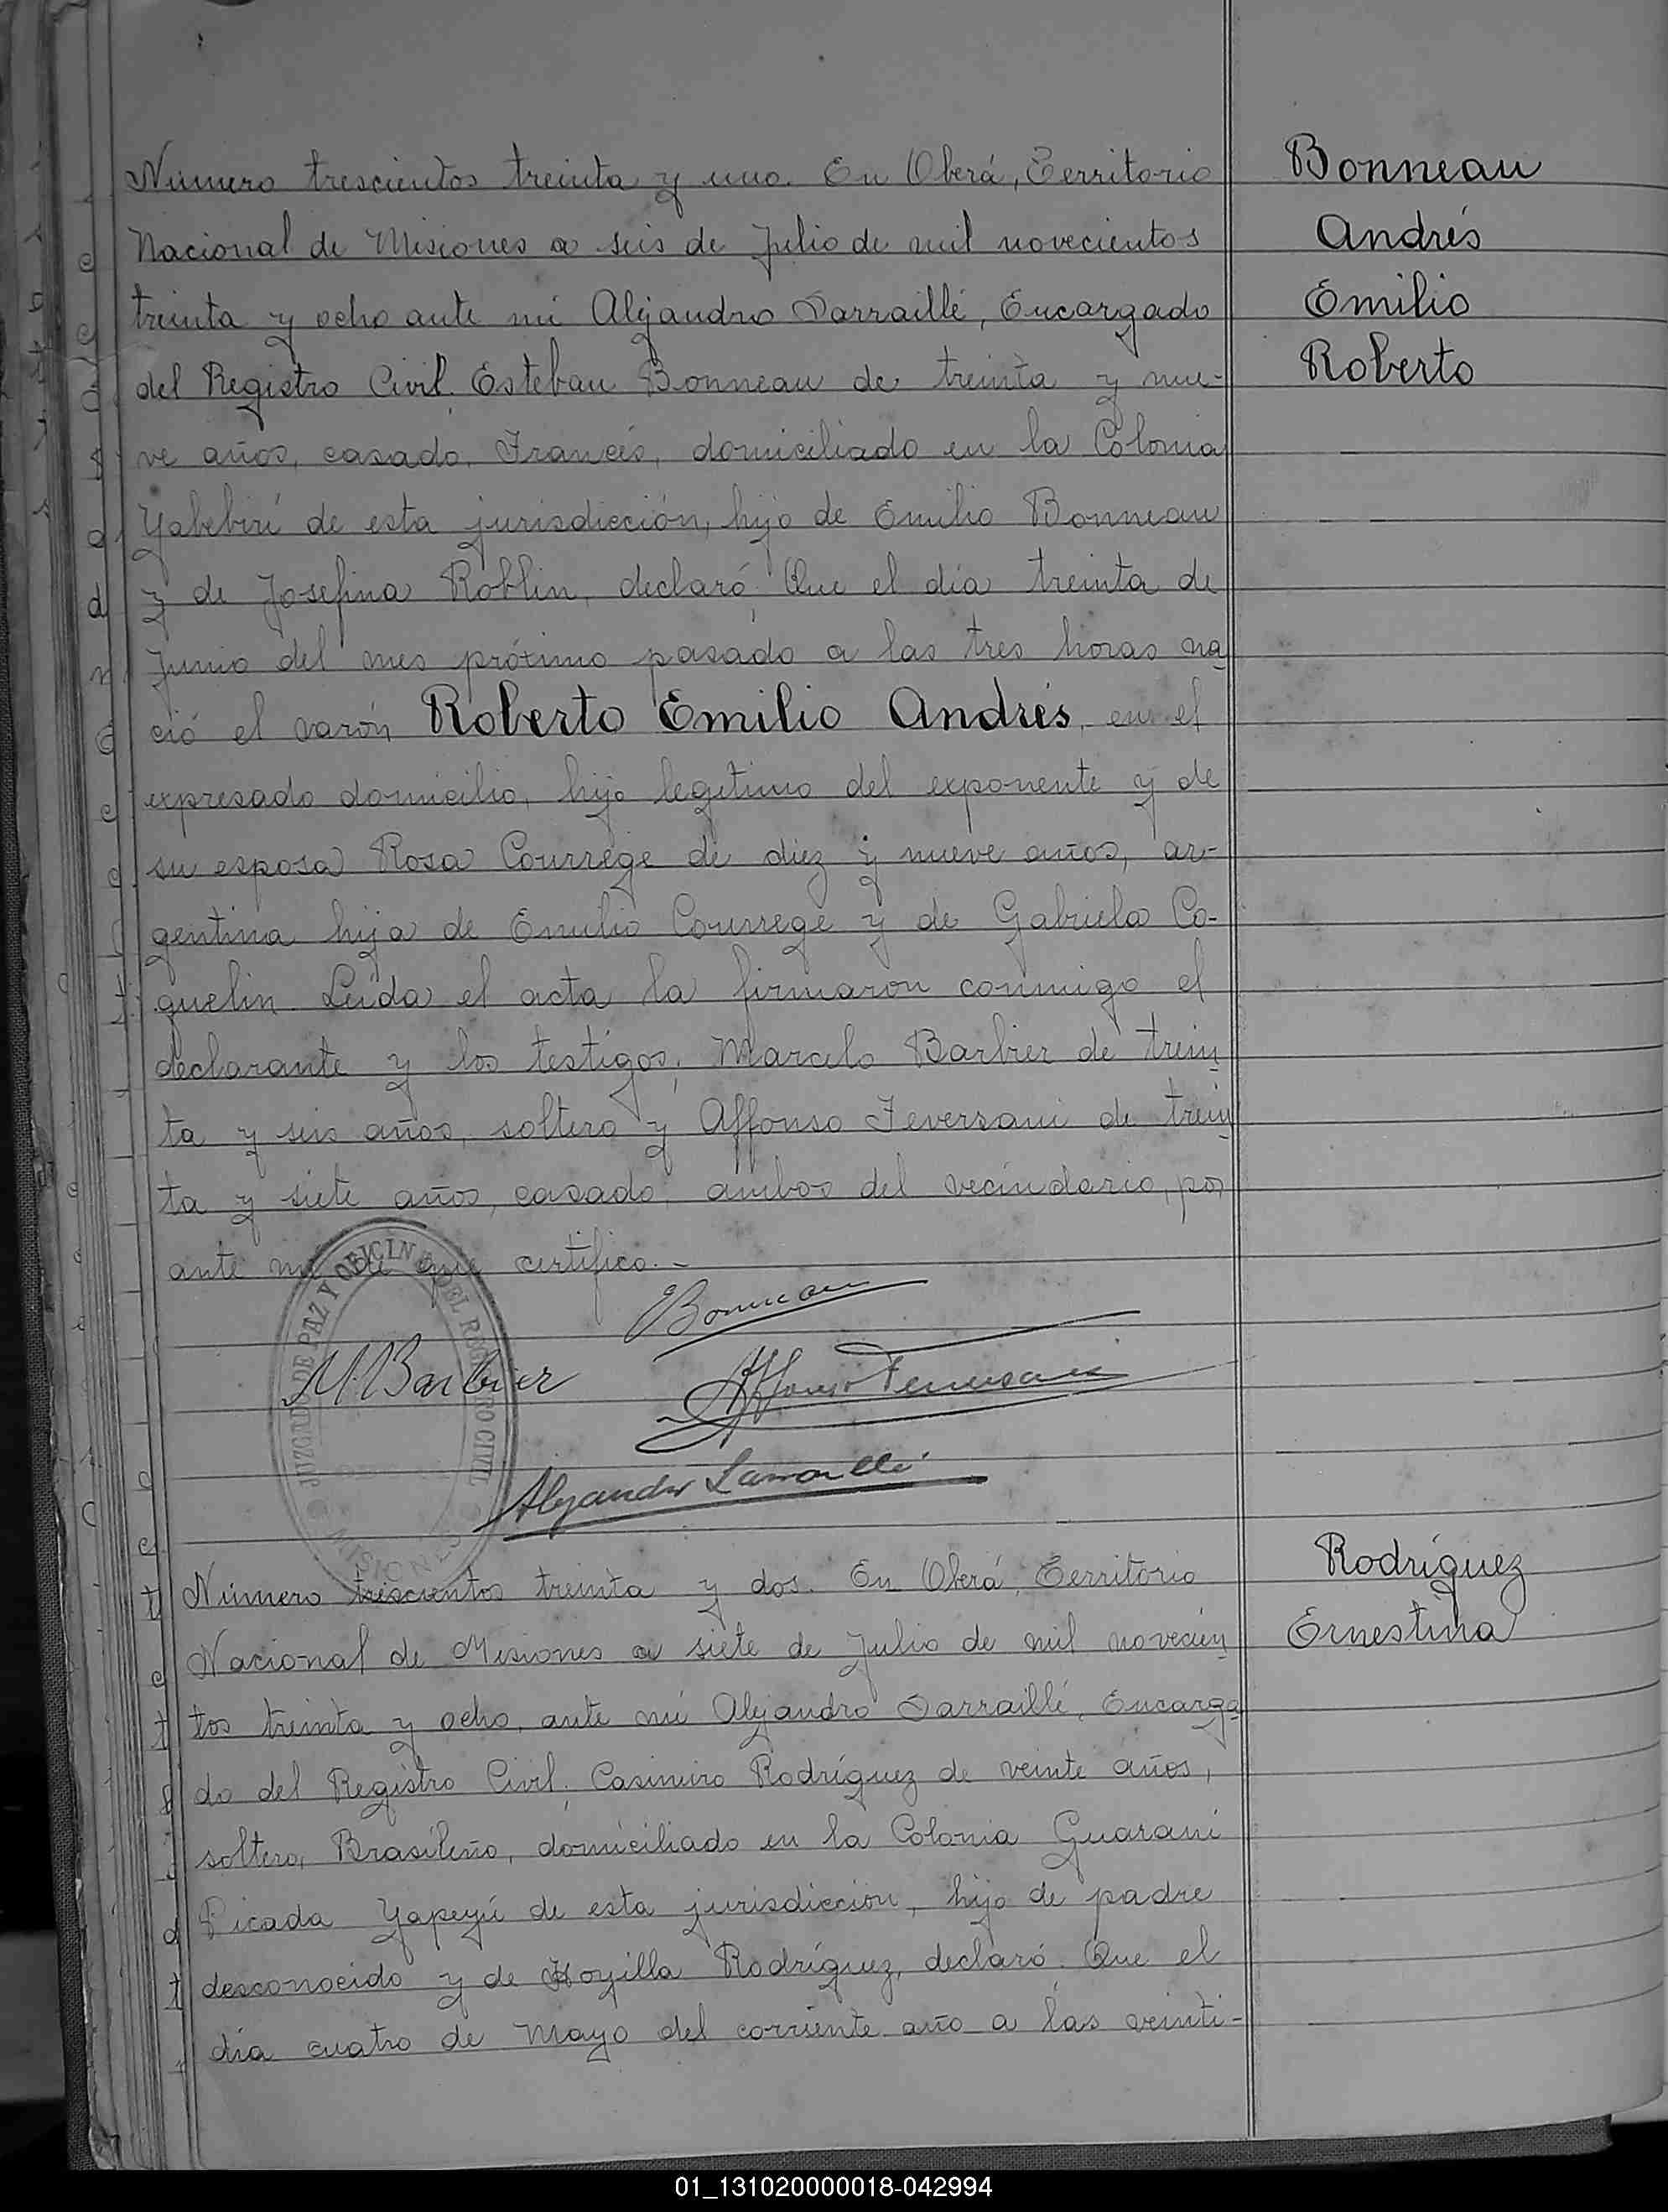 Número trescientos treinta y uno. En Oberá, Territorio
Nacional de Misiones a seis de Julio de mil novecientos
treinta y ocho ante mí Alejandro Darraillé, Encargado
del Registro Civil. Esteban Bonneau de treinta y nue-
ve años, casado, Francés, domiciliado en la Colonia
Yabebirí de esta jurisdicción, hijo de Emilio Bonneau
y de Josefina Roblin, declaró: Que el día treinta de
Junio del mes próximo pasado a las tres horas na
ció el varón Roberto Emilio Andrés, en el
expresado domicilio, hijo legítimo del exponente y de
su esposa Rosa Courrége de diez y nueve años, ar-
gentina hija de Emilio Courrege y de Gabriela Co-
quelin. Leída el acta la firmaron conmigo el
declarante y los testigos, Marcelo Barbier de trein
ta y seis años, soltero y Affonso Feversani de trein
ta y siete años, casado, ambos del vecindario, por
ante mí de que certifico.-
EBonneau
M. Barbier
Affonso
Alejandro
JUZGADO DE PAZ Y OFICINA DEL REGISTRO CIVIL
MISIONES
Bonneau
Andrés
Emilio
Roberto
Número trescientos treinta y dos. En Oberá, Territorio
Nacional de Misiones a siete de Julio de mil novecien
tos treinta y ocho, ante mí Alejandro Darraillé, Encarga
do del Registro Civil, Casimiro Rodríguez de veinte años,
soltero, Brasileño, domiciliado en la Colonia Guaraní
Picada Yapeyú de esta jurisdicción, hijo de padre
desconocido y de Rodríguez, declaró: Que el
día cuatro de Mayo del corriente año a las veinti-
Rodríguez
Ernestina
01_131020000018-042994